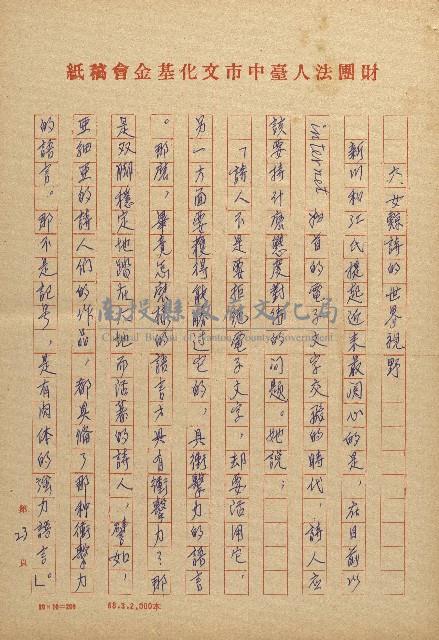 財團法人臺中市文化基金會稿紙
六、女縣詩的世界視野
新川和江氏提起近來最関心的是，在目前以
internet 独有的電子文字交融的時代，詩人应
該要持什麼態度對待的问題。她說：
「詩人不是要拒絕電子文字，却要活用它，
另一方面要獲得能勝过它的，具衝擊力的語言
。那麼，畢竟怎麼樣的語言才具有衝擊力？那
是双脚穩定地踏在大地而活著的詩人，譬如，
亜細亜的詩人们的作品，都具備了那种衝擊力
的語言。那不是記号，是有肉体的強力語言」。
第23頁
20×10=200
68.3.2,000本
南投縣政府文化局
Cultural Bureau of Nantou County Government